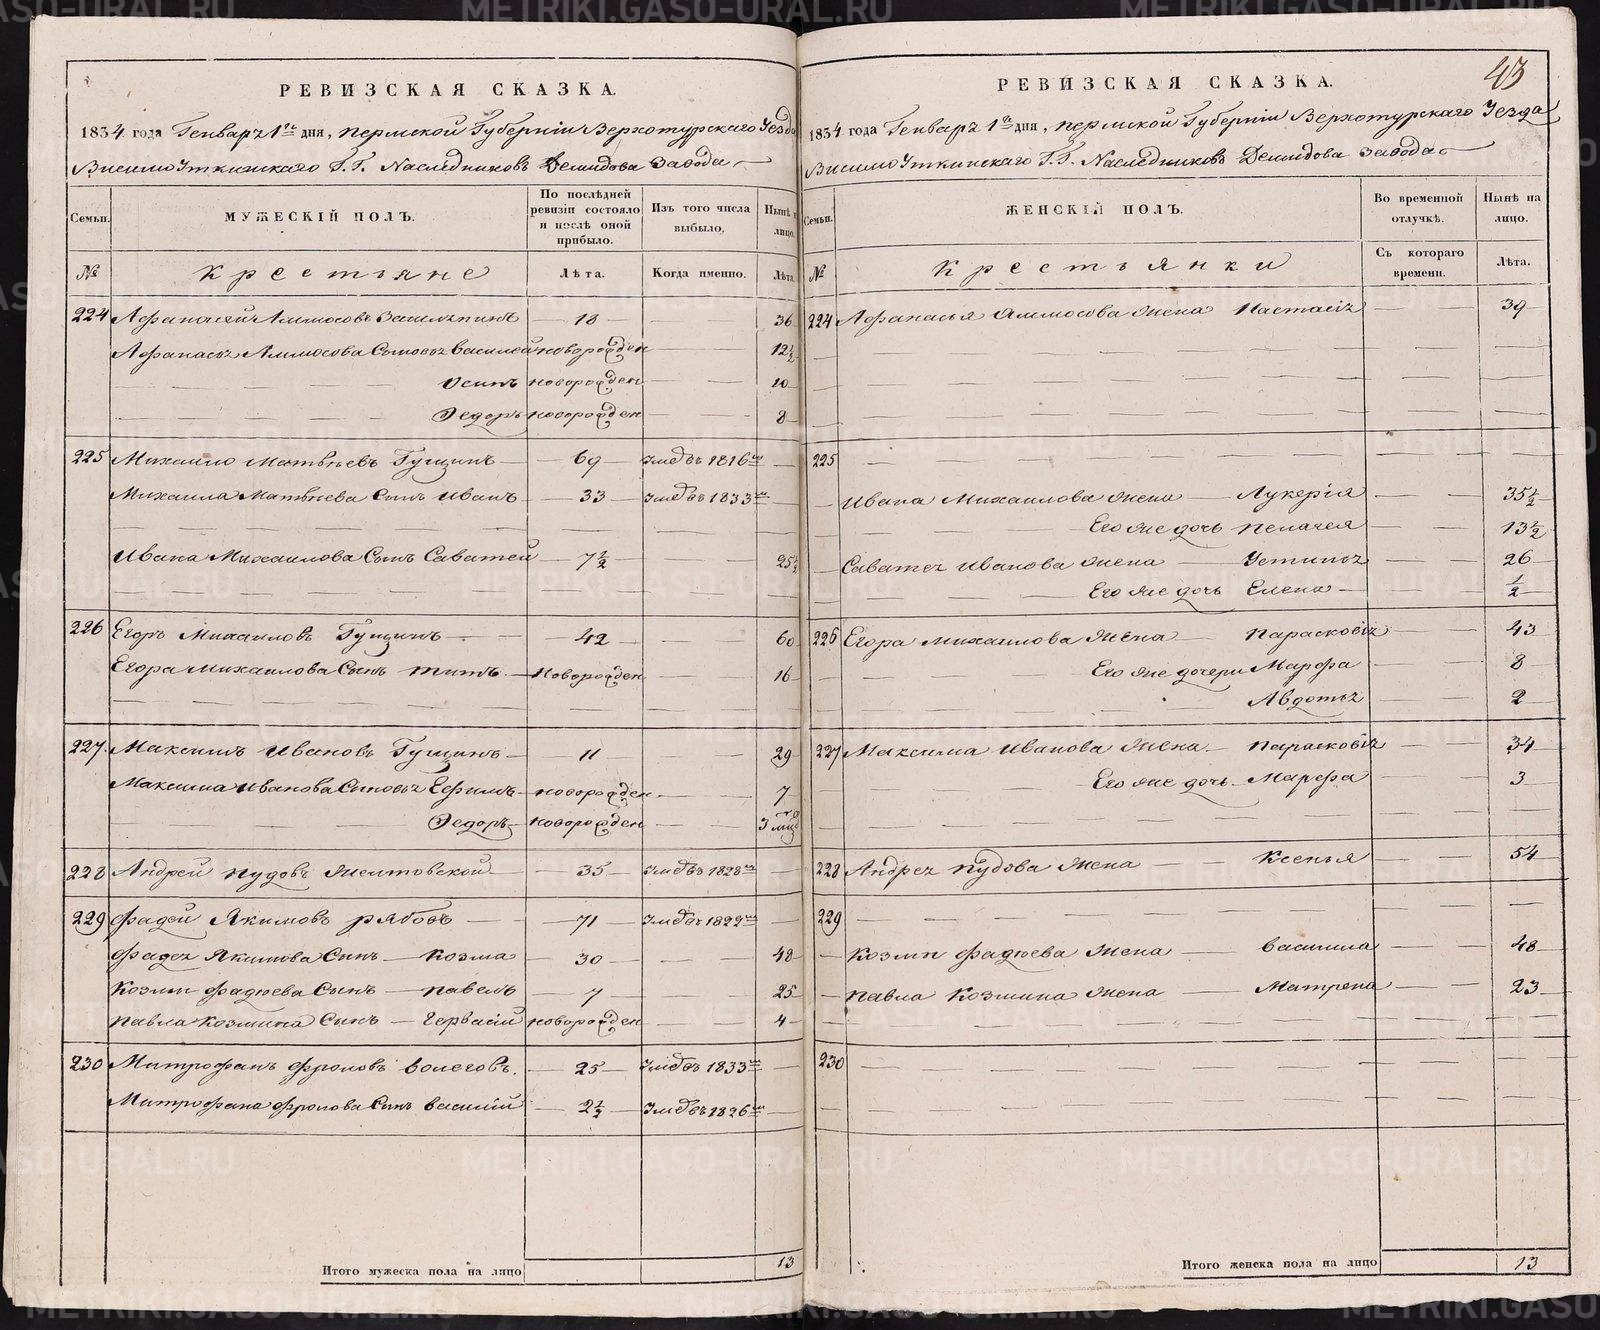 РЕВИЗСКАЯ СКАЗКА.
1834 года Генваря 1го дня, Пермской Губерніи Верхотурскаго Уезда
Висимо Уткинскаго Г.Г. Наследниковъ Демидова Завода
Семьи. МУЖЕСКІЙ ПОЛЪ. По послѣдней ревизіи состояло и послѣ оной прибыло. Изъ того числа выбыло, Нынѣ на лицо.
№ Крестьяне Лѣта. Когда именно. Лѣта.
224 Афанасей Аммосовъ 18 36
Афанасья Аммосова Сыновья Василей новорожден 12½
Осипъ новорожден 10
Федоръ новорожден 8
225 Михаило Матвѣевъ Гущинъ 69 Умеръ въ 1816м
Михаила Матвѣева Сынъ Иванъ 33 Умеръ въ 1833м
Ивана Михаилова Сынъ Саватей 7½ 25½
226 Егоръ Михаиловъ Гущинъ 42 60
Егора Михаилова Сынъ Титъ новорожден 16
227 Максимъ Ивановъ Гущинъ 11 29
Максима Иванова Сыновья Ефимъ новорожден 7
Федоръ новорожден 3 мца
228 Андрей Пудовъ 35 Умеръ въ 1828м
229 Фадей Якимовъ Рябовъ 71 Умеръ въ 1822м
Фадея Якимова Сынъ Козма 30 48
Козмы Фадѣева Сынъ Павелъ 7 25
Павла Козмина Сынъ Гервасій новорожден 4
230 Митрофанъ Фроловъ Волеговъ. 25 Умеръ въ 1833м
Митрофана Фролова Сынъ Василій 2½ Умеръ въ 1826м
Итого мужеска пола на лицо 13
43
РЕВИЗСКАЯ СКАЗКА.
1834 года Генваря 1го дня, Пермской Губерніи Верхотурскаго Уезда
Висимо Уткинскаго Г.Г. Наследниковъ Демидова Завода
Семьи. ЖЕНСКІЙ ПОЛЪ. Во временной отлучкѣ. Нынѣ на лицо.
№ Крестьянки Съ котораго времени. Лѣта.
224 Афанасья Аммосова жена Настасія 39
225
Ивана Михаилова жена Лукерія 35½
Его же дочь Пелагея 13½
Саватея Иванова жена Устинья 26
Его же дочь Елена ½
226 Егора Михаилова жена Парасковія 43
Его же дочери Марфа 8
Авдотья 2
227 Максима Иванова жена Парасковія 34
Его же дочь Марфа 3
228 Андрея Пудова жена Ксенья 54
229
Козмы Фадѣева жена Василиса 48
Павла Козмина жена Матрена 23
230
Итого женска пола на лицо 13
METRIKI.GASO-URAL.RU